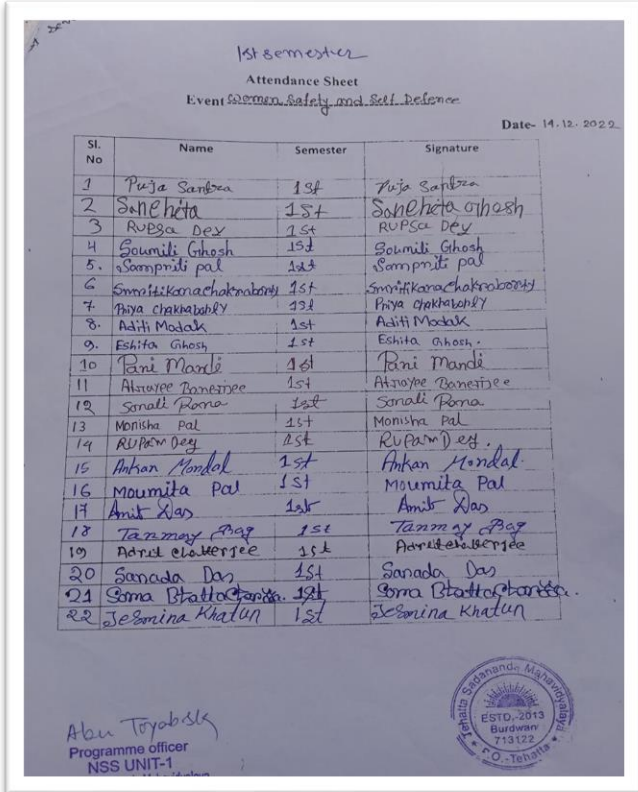 1st semester
Attendance Sheet
Event Women Safety and Self Defence
Date- 14.12.2022
Sl. No Name Semester Signature
1 Puja Santra 1st Puja Santra
2 Sancheta 1st Sancheta Ghosh
3 RUPSA DEY 1st RUPSA DEY
4 Soumili Ghosh 1st Soumili Ghosh
5. Sampriti pal 1st Sampriti pal
6 Smritikana chakraborty 1st Smritikana chakraborty
7 Priya chakraborty 1st Priya chakraborty
8. Aditi Modak 1st Aditi Modak
9. Eshita Ghosh 1st Eshita Ghosh.
10 Pani Mandi 1st Pani Mandi
11 Banerjee 1st Banerjee
12 Sonali Rana 1st Sonali Rana
13 Monisha Pal 1st Monisha Pal
14 RUPam Dey 1st RUPam Dey.
15 Ankan Mondal 1st Ankan Mondal.
16 Moumita Pal 1st Moumita Pal
17 Amit Das 1st Amit Das
18 Tanmoy Bag 1st Tanmoy Bag
19 chatterjee 1st chatterjee
20 Sanada Das 1st Sanada Das
21 Soma 1st Soma
22 Jesmina Khatun 1st Jesmina Khatun
Abu
Programme officer
NSS UNIT-1
Tehatta Sadananda Mahavidyalaya
ESTD.-2013
Burdwan
713122
P.O.-Tehatta